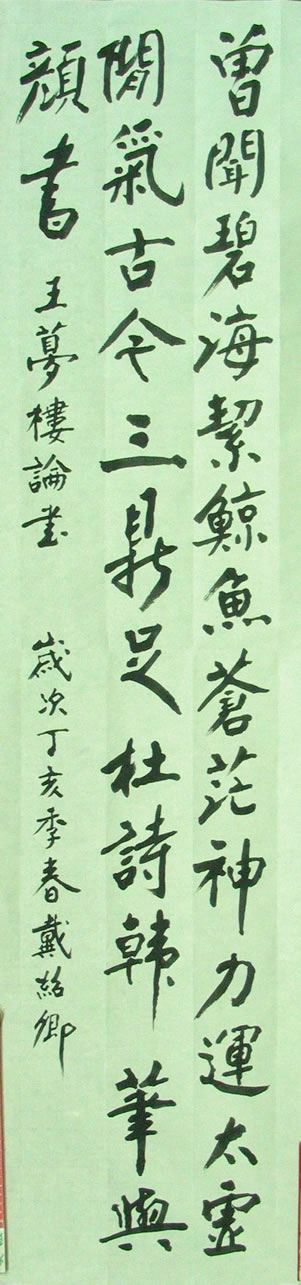 曾聞碧海絜鯨魚蒼茫神力運太虛
間氣古今三鼎足杜詩韓筆與
顏書 王夢樓論書 歲次丁亥季春戴紹卿